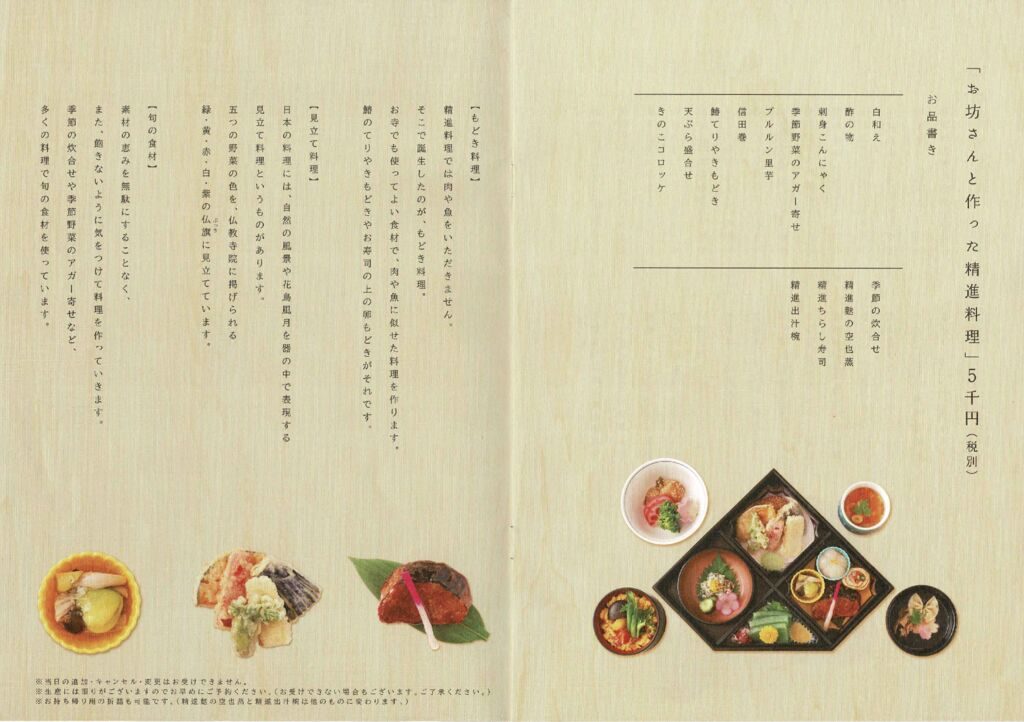 「お坊さんと作った精進料理」5千円（税別）
お品書き
白和え
酢の物
刺身こんにゃく
季節野菜のアガー寄せ
プルルン里芋
信田巻
鰆てりやきもどき
天ぷら盛合せ
きのこコロッケ
季節の炊合せ
精進麩の空也蒸
精進ちらし寿司
精進出汁椀
【もどき料理】
精進料理では肉や魚をいただきません。
そこで誕生したのが、もどき料理。
お寺でも使ってよい食材で、肉や魚に似せた料理を作ります。
鰆のてりやきもどきやお寿司の上の卵もどきがそれです。
【見立て料理】
日本の料理には、自然の風景や花鳥風月を器の中で表現する
見立て料理というものがあります。
五つの野菜の色を、仏教寺院に掲げられる
緑・黄・赤・白・紫の仏旗に見立てています。
ぶっき
【旬の食材】
素材の恵みを無駄にすることなく、
また、飽きないように気をつけて料理を作っていきます。
季節の炊合せや季節野菜のアガー寄せなど、
多くの料理で旬の食材を使っています。
※当日の追加・キャンセル・変更はお受けできません。
※生産には限りがございますのでお早めにご予約ください。（お受けできない場合もございます。ご了承ください。）
※お持ち帰り用の折詰も可能です。（精進麩の空也蒸と精進出汁椀は他のものに変わります。）